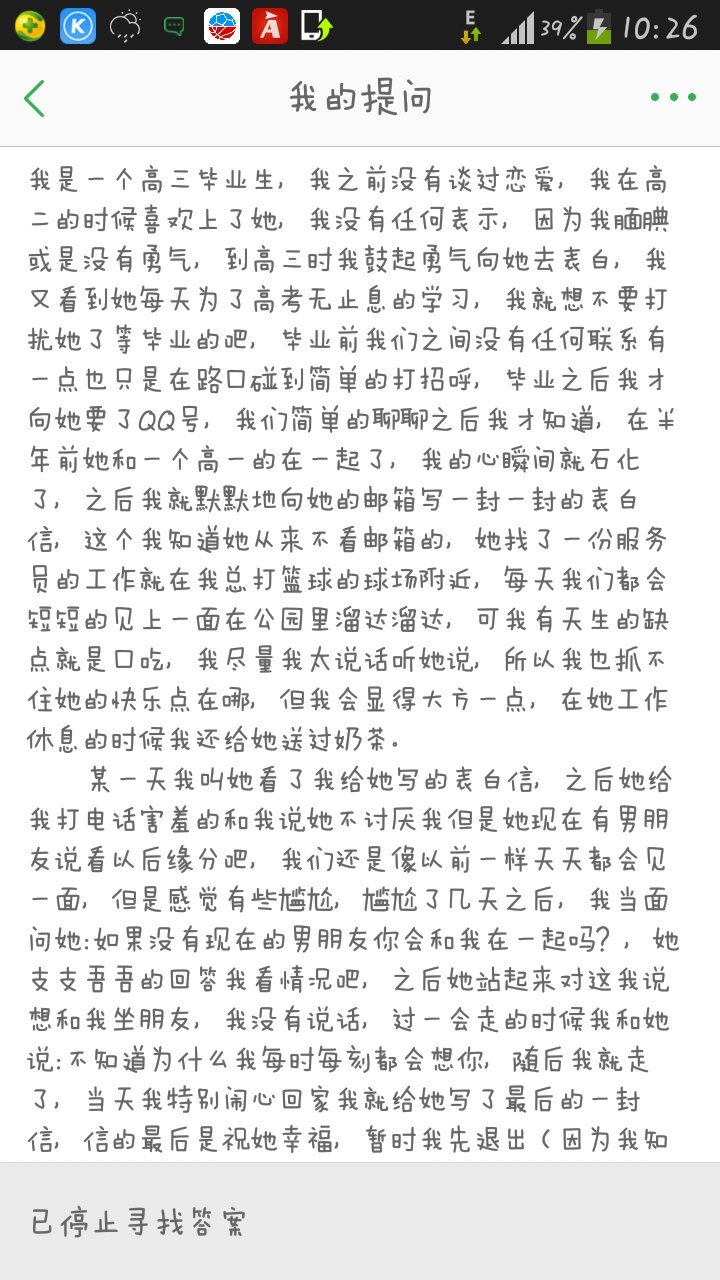 E
39%
10:26
我的提问
我是一个高三毕业生，我之前没有谈过恋爱，我在高
二的时候喜欢上了她，我没有任何表示，因为我腼腆
或是没有勇气，到高三时我鼓起勇气向她去表白，我
又看到她每天为了高考无止息的学习，我就想不要打
扰她了等毕业的吧，毕业前我们之间没有任何联系有
一点也只是在路口碰到简单的打招呼，毕业之后我才
向她要了QQ号，我们简单的聊聊之后我才知道，在半
年前她和一个高一的在一起了，我的心瞬间就石化
了，之后我就默默地向她的邮箱写一封一封的表白
信，这个我知道她从来不看邮箱的，她找了一份服务
员的工作就在我总打篮球的球场附近，每天我们都会
短短的见上一面在公园里溜达溜达，可我有天生的缺
点就是口吃，我尽量我太说话听她说，所以我也抓不
住她的快乐点在哪，但我会显得大方一点，在她工作
休息的时候我还给她送过奶茶。
某一天我叫她看了我给她写的表白信，之后她给
我打电话害羞的和我说她不讨厌我但是她现在有男朋
友说看以后缘分吧，我们还是像以前一样天天都会见
一面，但是感觉有些尴尬，尴尬了几天之后，我当面
问她:如果没有现在的男朋友你会和我在一起吗？，她
支支吾吾的回答我看情况吧，之后她站起来对这我说
想和我坐朋友，我没有说话，过一会走的时候我和她
说:不知道为什么我每时每刻都会想你，随后我就走
了，当天我特别闹心回家我就给她写了最后的一封
信，信的最后是祝她幸福，暂时我先退出（因为我知
已停止寻找答案